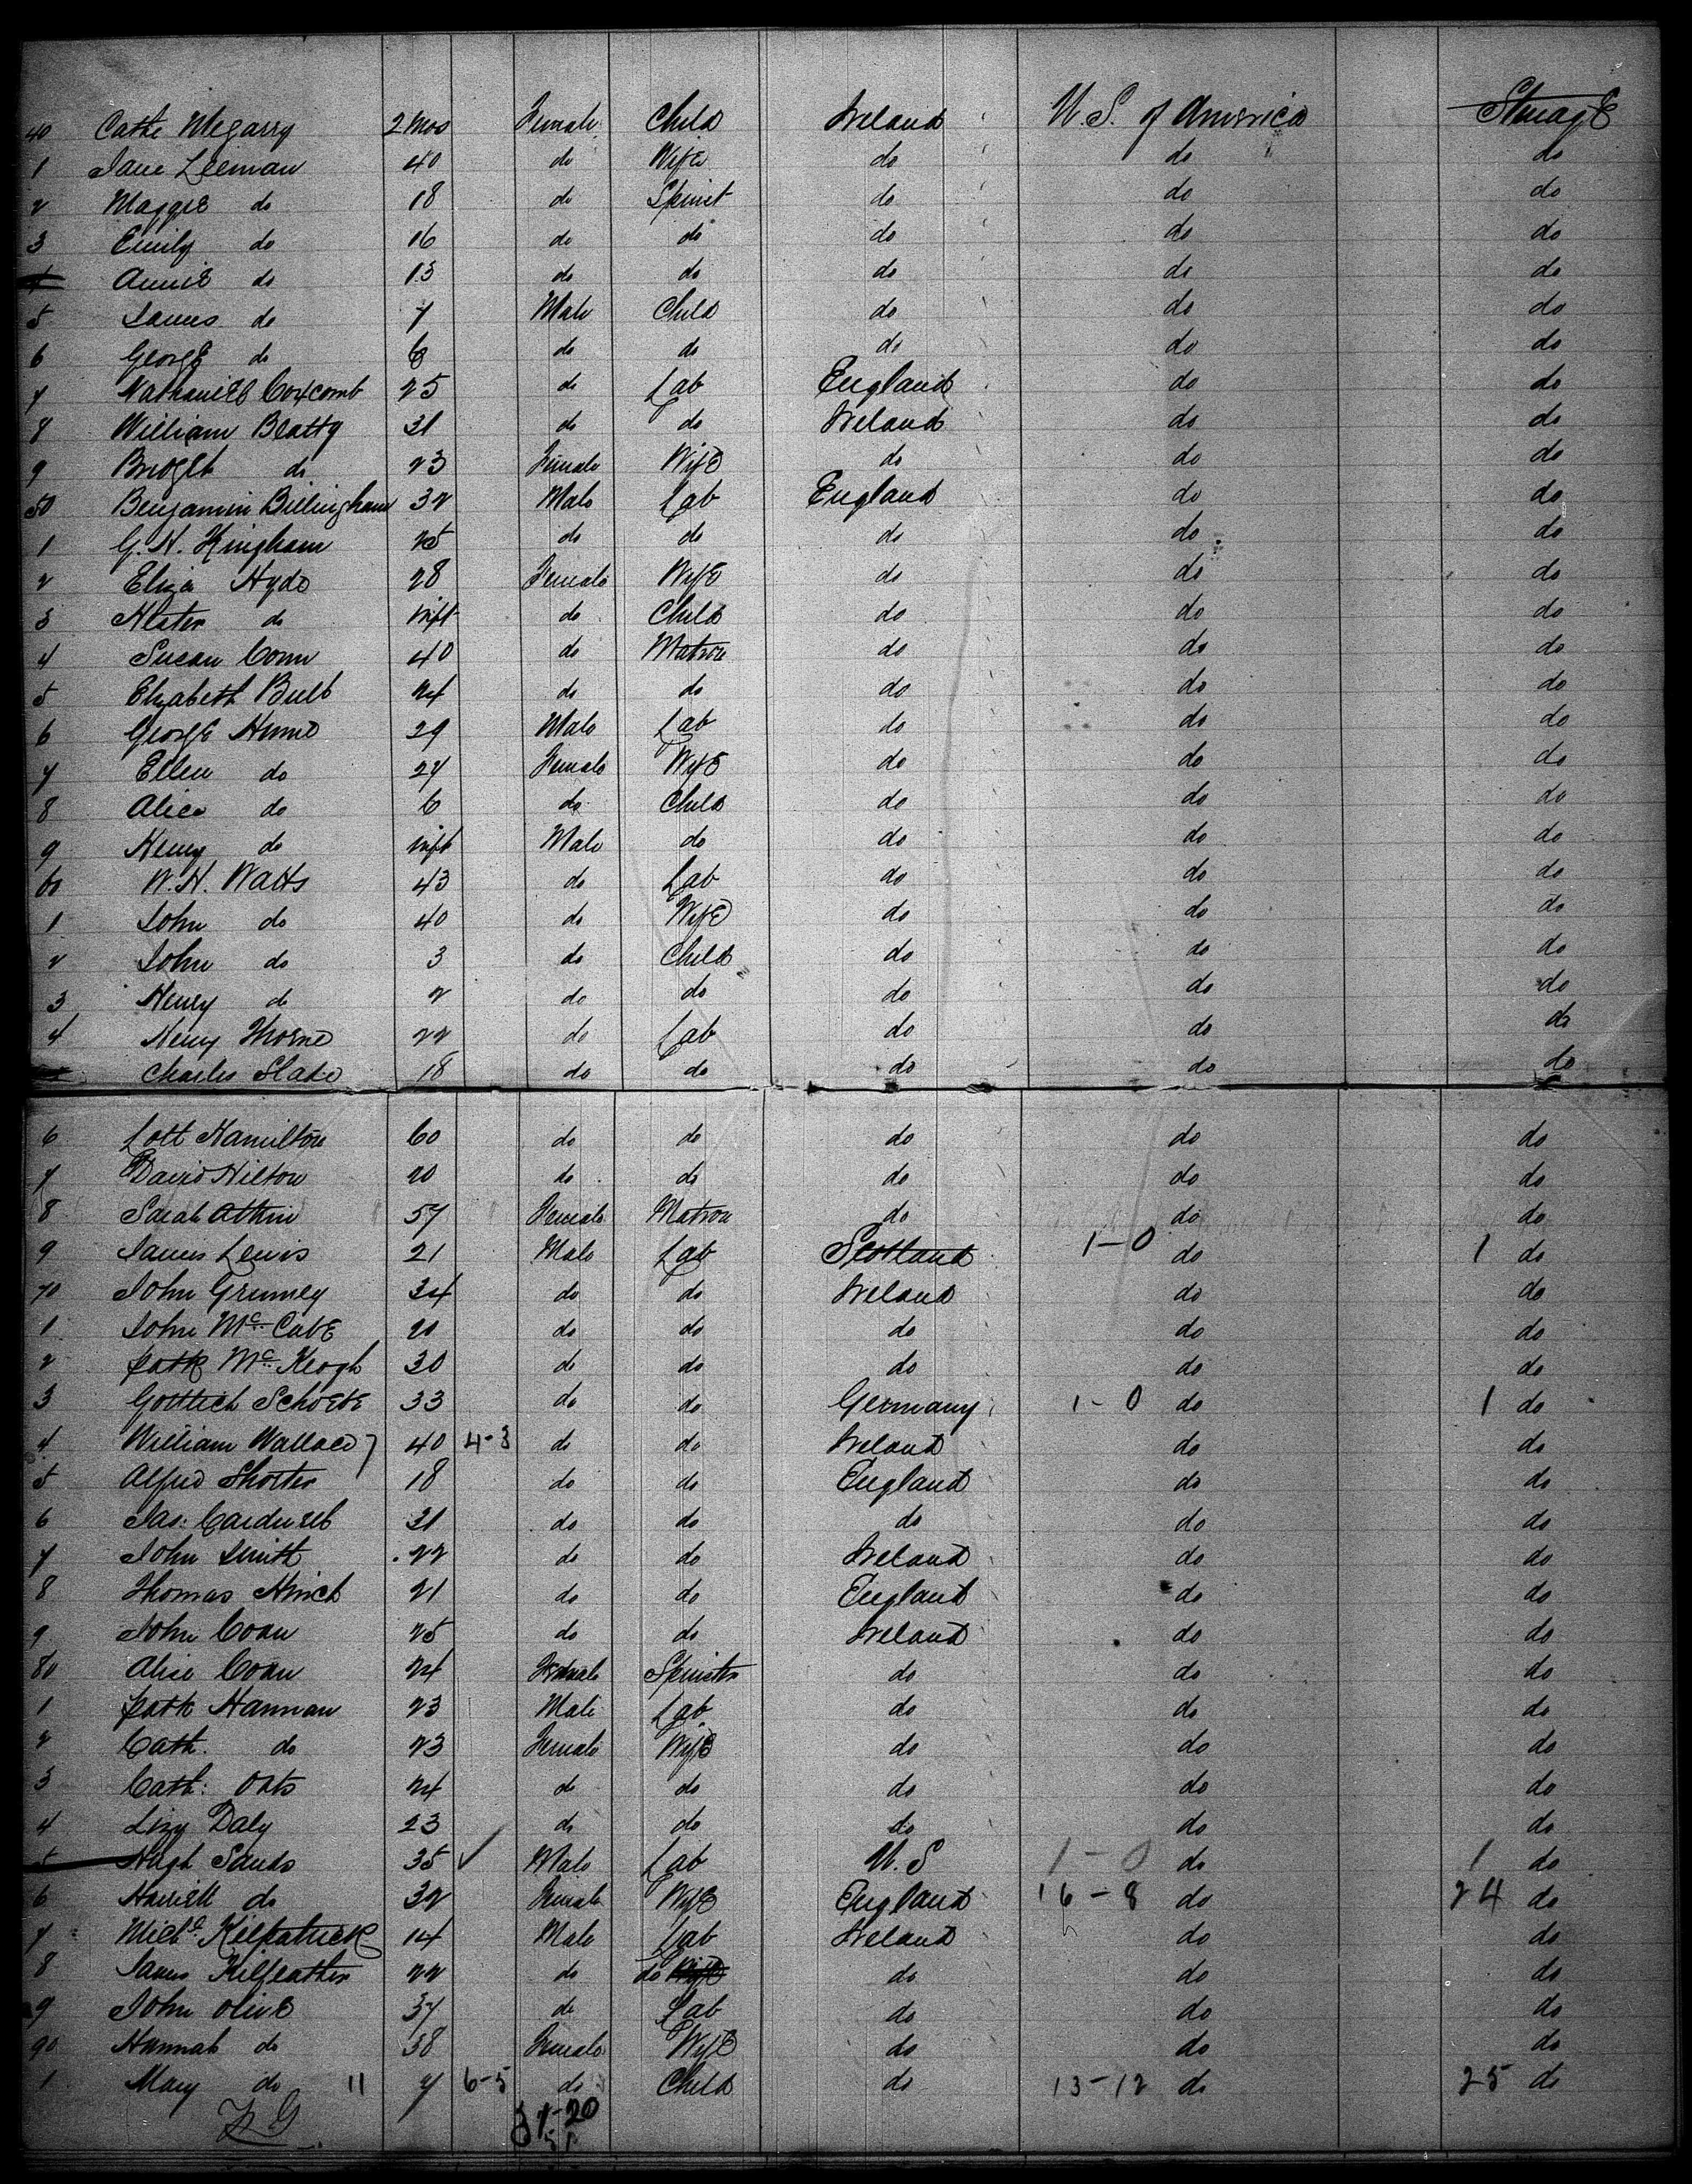 40 Cathe Megarry 2 Mos Female Child Ireland U.S. of America Steerage
1 Jane Leeman 40 do Wife do do do
2 Maggie do 18 do Spinst do do do
3 Emily do 16 do do do do do
4 Annie do 13 do do do do do
5 James do 7 Male Child do do do
6 George do 6 do do do do do
7 Nathaniel Coxcomb 25 do Lab England do do
8 William Beatty 31 do do Ireland do do
9 Bridget do 23 Female Wife do do do
50 Benjamin Billingham 32 Male Lab England do do
1 G. H. Kingham 25 do do do do do
2 Eliza Hyde 28 Female Wife do do do
3 Hester do Inft do Child do do do
4 Susan Conn 40 do Matron do do do
5 Elizabeth Bull 24 do do do do do
6 George Hume 29 Male Lab do do do
7 Ellen do 27 Female Wife do do do
8 Alice do 6 do Child do do do
9 Henry do Inft Male do do do do
60 W. H. Watts 43 do Lab do do do
1 John do 40 do Wife do do do
2 John do 3 do Child do do do
3 Henry do 2 do do do do do
4 Henry Thorne 22 do Lab do do do
Charles Slade 18 do do do do do
6 Lott Hamilton 60 do do do do do
7 David Hilton 20 do do do do do
8 Sarah Atkin 57 Female Matron do do do
9 James Lewis 21 Male Lab Scotland 1-0 do 1 do
70 John Grumley 34 do do Ireland do do
1 John McCabe 20 do do do do do
2 Patk McKeogh 30 do do do do do
3 Gottlieb 33 do do Germany 1-0 do 1 do
4 William Wallace 7 40 4-3 do do Ireland do do
5 Alfred Shorter 18 do do England do do
6 Jas: Cardwell 31 do do do do do
7 John Smith 22 do do Ireland do do
8 Thomas 21 do do England do do
9 John Coan 25 do do Ireland do do
80 Alice Coan 24 Female Spinster do do do
1 Patk Hannan 23 Male Lab do do do
2 Cath. do 23 Female Wife do do do
3 Cath: Oats 24 do do do do do
4 Lizy Daly 23 do do do do do
5 Hugh Sands 35 ✓ Male Lab U.S 1-0 do 1 do
6 Harriett do 32 Female Wife England 16-8 do 24 do
7 Michl Kilpatrick 14 Male Lab Ireland do do
8 James Kilfeather 22 do do Wife do do do
9 John Olive 37 do Lab do do do
90 Hannah do 38 Female Wife do do do
1 Mary do 11 7 6-5 do Child do 13-12 do 25 do